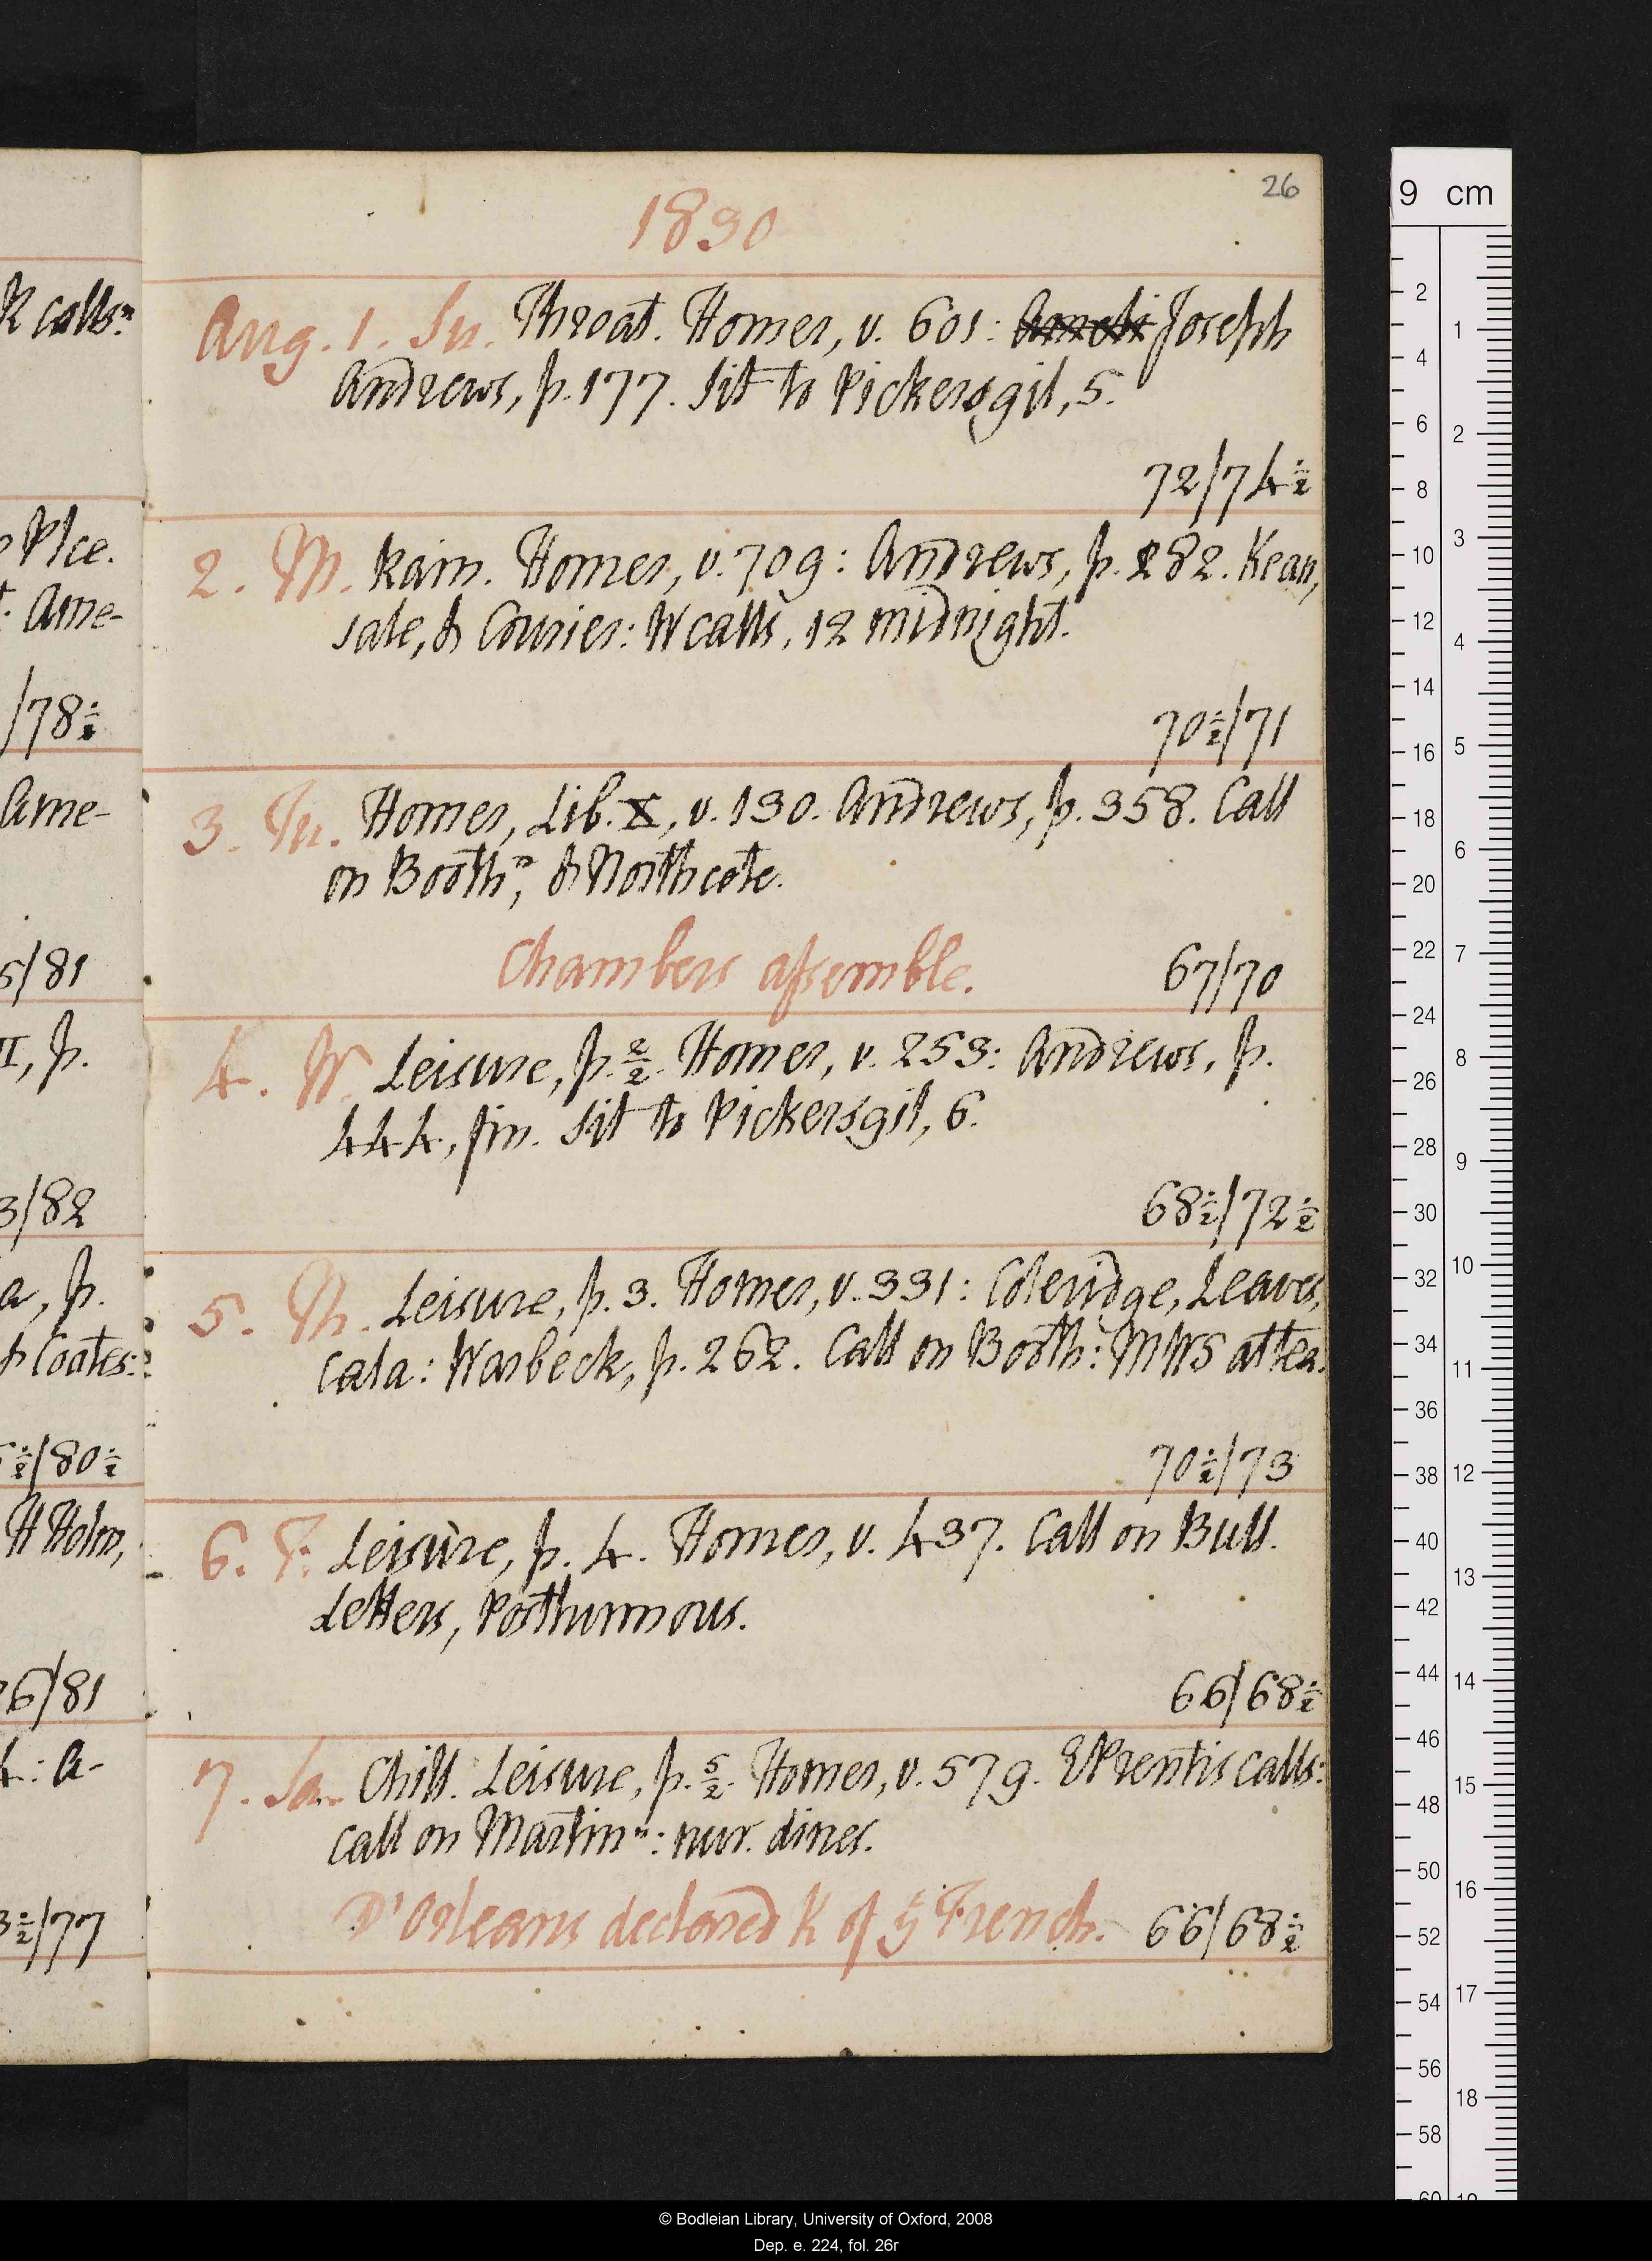 26
1830
Aug. 1. Su. Throat. Homer, v. 601: Joseph
Andrews, p. 177. Sit to Pickersgil, 5.
72/74½
2. M. Rain. Homer, v. 709: Andrews, p. 282. Kean,
sale, & Courier: W calls, 12 midnight.
70½/71
3. Tu. Homer, Lib. X, v. 130. Andrews, p. 358. Call
on Boothⁿ, & Northcote.
Chambers assemble. 67/70
4. W. Leisure, p. 2/2. Homer, v. 253: Andrews, p.
444, fin. Sit to Pickersgil, 6.
68½/72½
5. Th. Leisure, p. 3. Homer, v. 331: Coleridge, Leaves,
cala: Warbeck, p. 262. Call on Booth: MWS at tea.
70½/73
6. F. Leisure, p. 4. Homer, v. 437. Call on Bull.
Letters, Posthumous.
66/68½
7. Sa. Chill. Leisure, p. 5/2. Homer, v. 579. E Prentis calls:
call on Martinⁿ: nur. dines.
D'Orleans declared K of yͤ French. 66/68½
R callsⁿ
Plce.
: Ame-
/78½
Ame-
5/81
II, p.
3/82
a, p.
& Coates:
½/80½
H Holm,
6/81
: A-
3½/77
9 cm
2
4
6
8
10
12
14
16
18
20
22
24
26
28
30
32
34
36
38
40
42
44
46
48
50
52
54
56
58
60
1
2
3
4
5
6
7
8
9
10
11
12
13
14
15
16
17
18
© Bodleian Library, University of Oxford, 2008
Dep. e. 224, fol. 26r